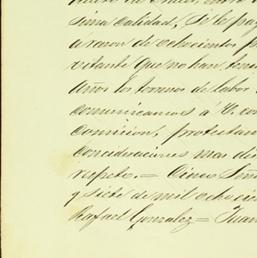 sima calidad, Se le pag
á razon de ochocientos p
vitante que no han teni
años los terrenos de labor
comunicamos á V. con
Comision, protestan
consideraciones mas dis
respeto. = Cinco Señ
y siete de mil ochocien
Rafael Gonzalez = Juan